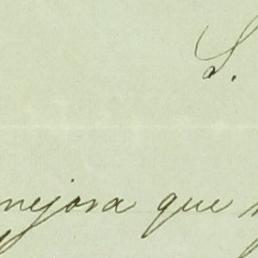 S.
mejora que